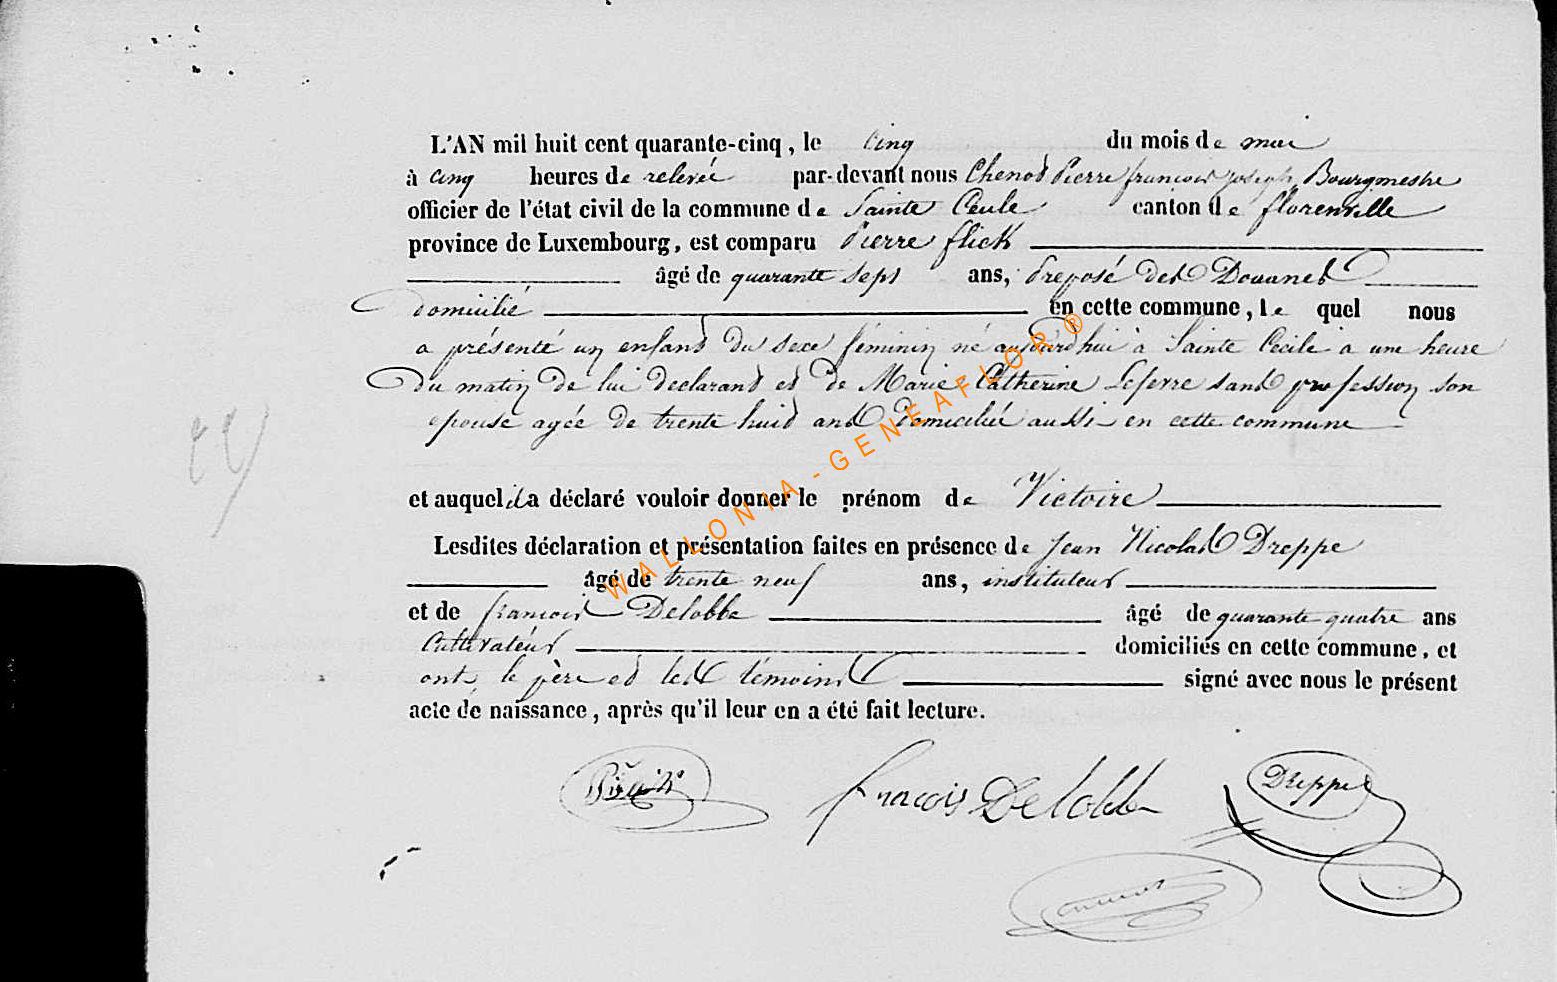 L'AN mil huit cent quarante-cinq, le cinq du mois de mai
à cinq heures de relevée par-devant nous Chenot Pierre françois joseph Bourgmestre
officier de l'état civil de la commune de Sainte Cecile canton de florenville
province de Luxembourg, est comparu Pierre flick
âgé de quarante sept ans, Preposé des Douanes
domicilié en cette commune, le quel nous
a présenté un enfant du sexe féminin né aujourdhui à Sainte Cecile à une heure
Du matin de lui declarant et de Marie Catherine Lefevre sans profession son
epouse agée de trente huit ans domiciliée aussi en cette commune
et auquel il a déclaré vouloir donner le prénom de Victoire
Lesdites déclaration et présentation faites en présence de Jean Nicolas Dreppe
âgé de trente neuf ans, instituteur
et de françois Delobbe âgé de quarante quatre ans
Cultivateur domiciliés en cette commune, et
ont, le père et les témoins signé avec nous le présent
acte de naissance, après qu'il leur en a été fait lecture.
francois Delobbe Dreppe
WALLONIA - GENEAFLOR ®